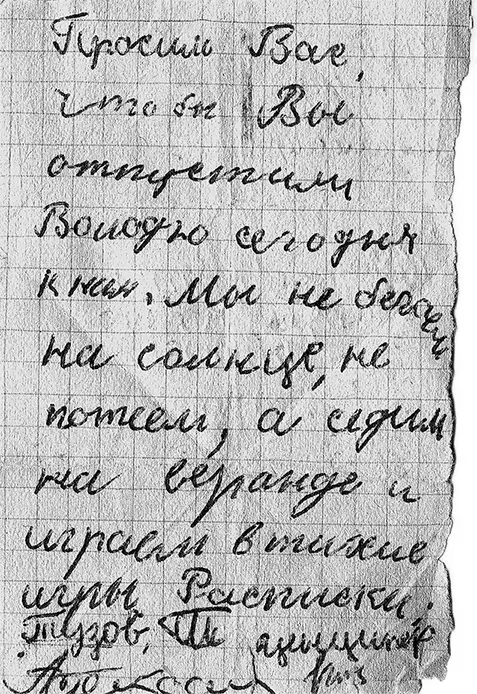 Просим Вас,
чтобы Вы
отпустили
Володю сегодня
к нам. Мы не бегаем
на солнце, не
потеем, а сидим
на веранде и
играем в тихие
игры. Расписки.
Тузов,